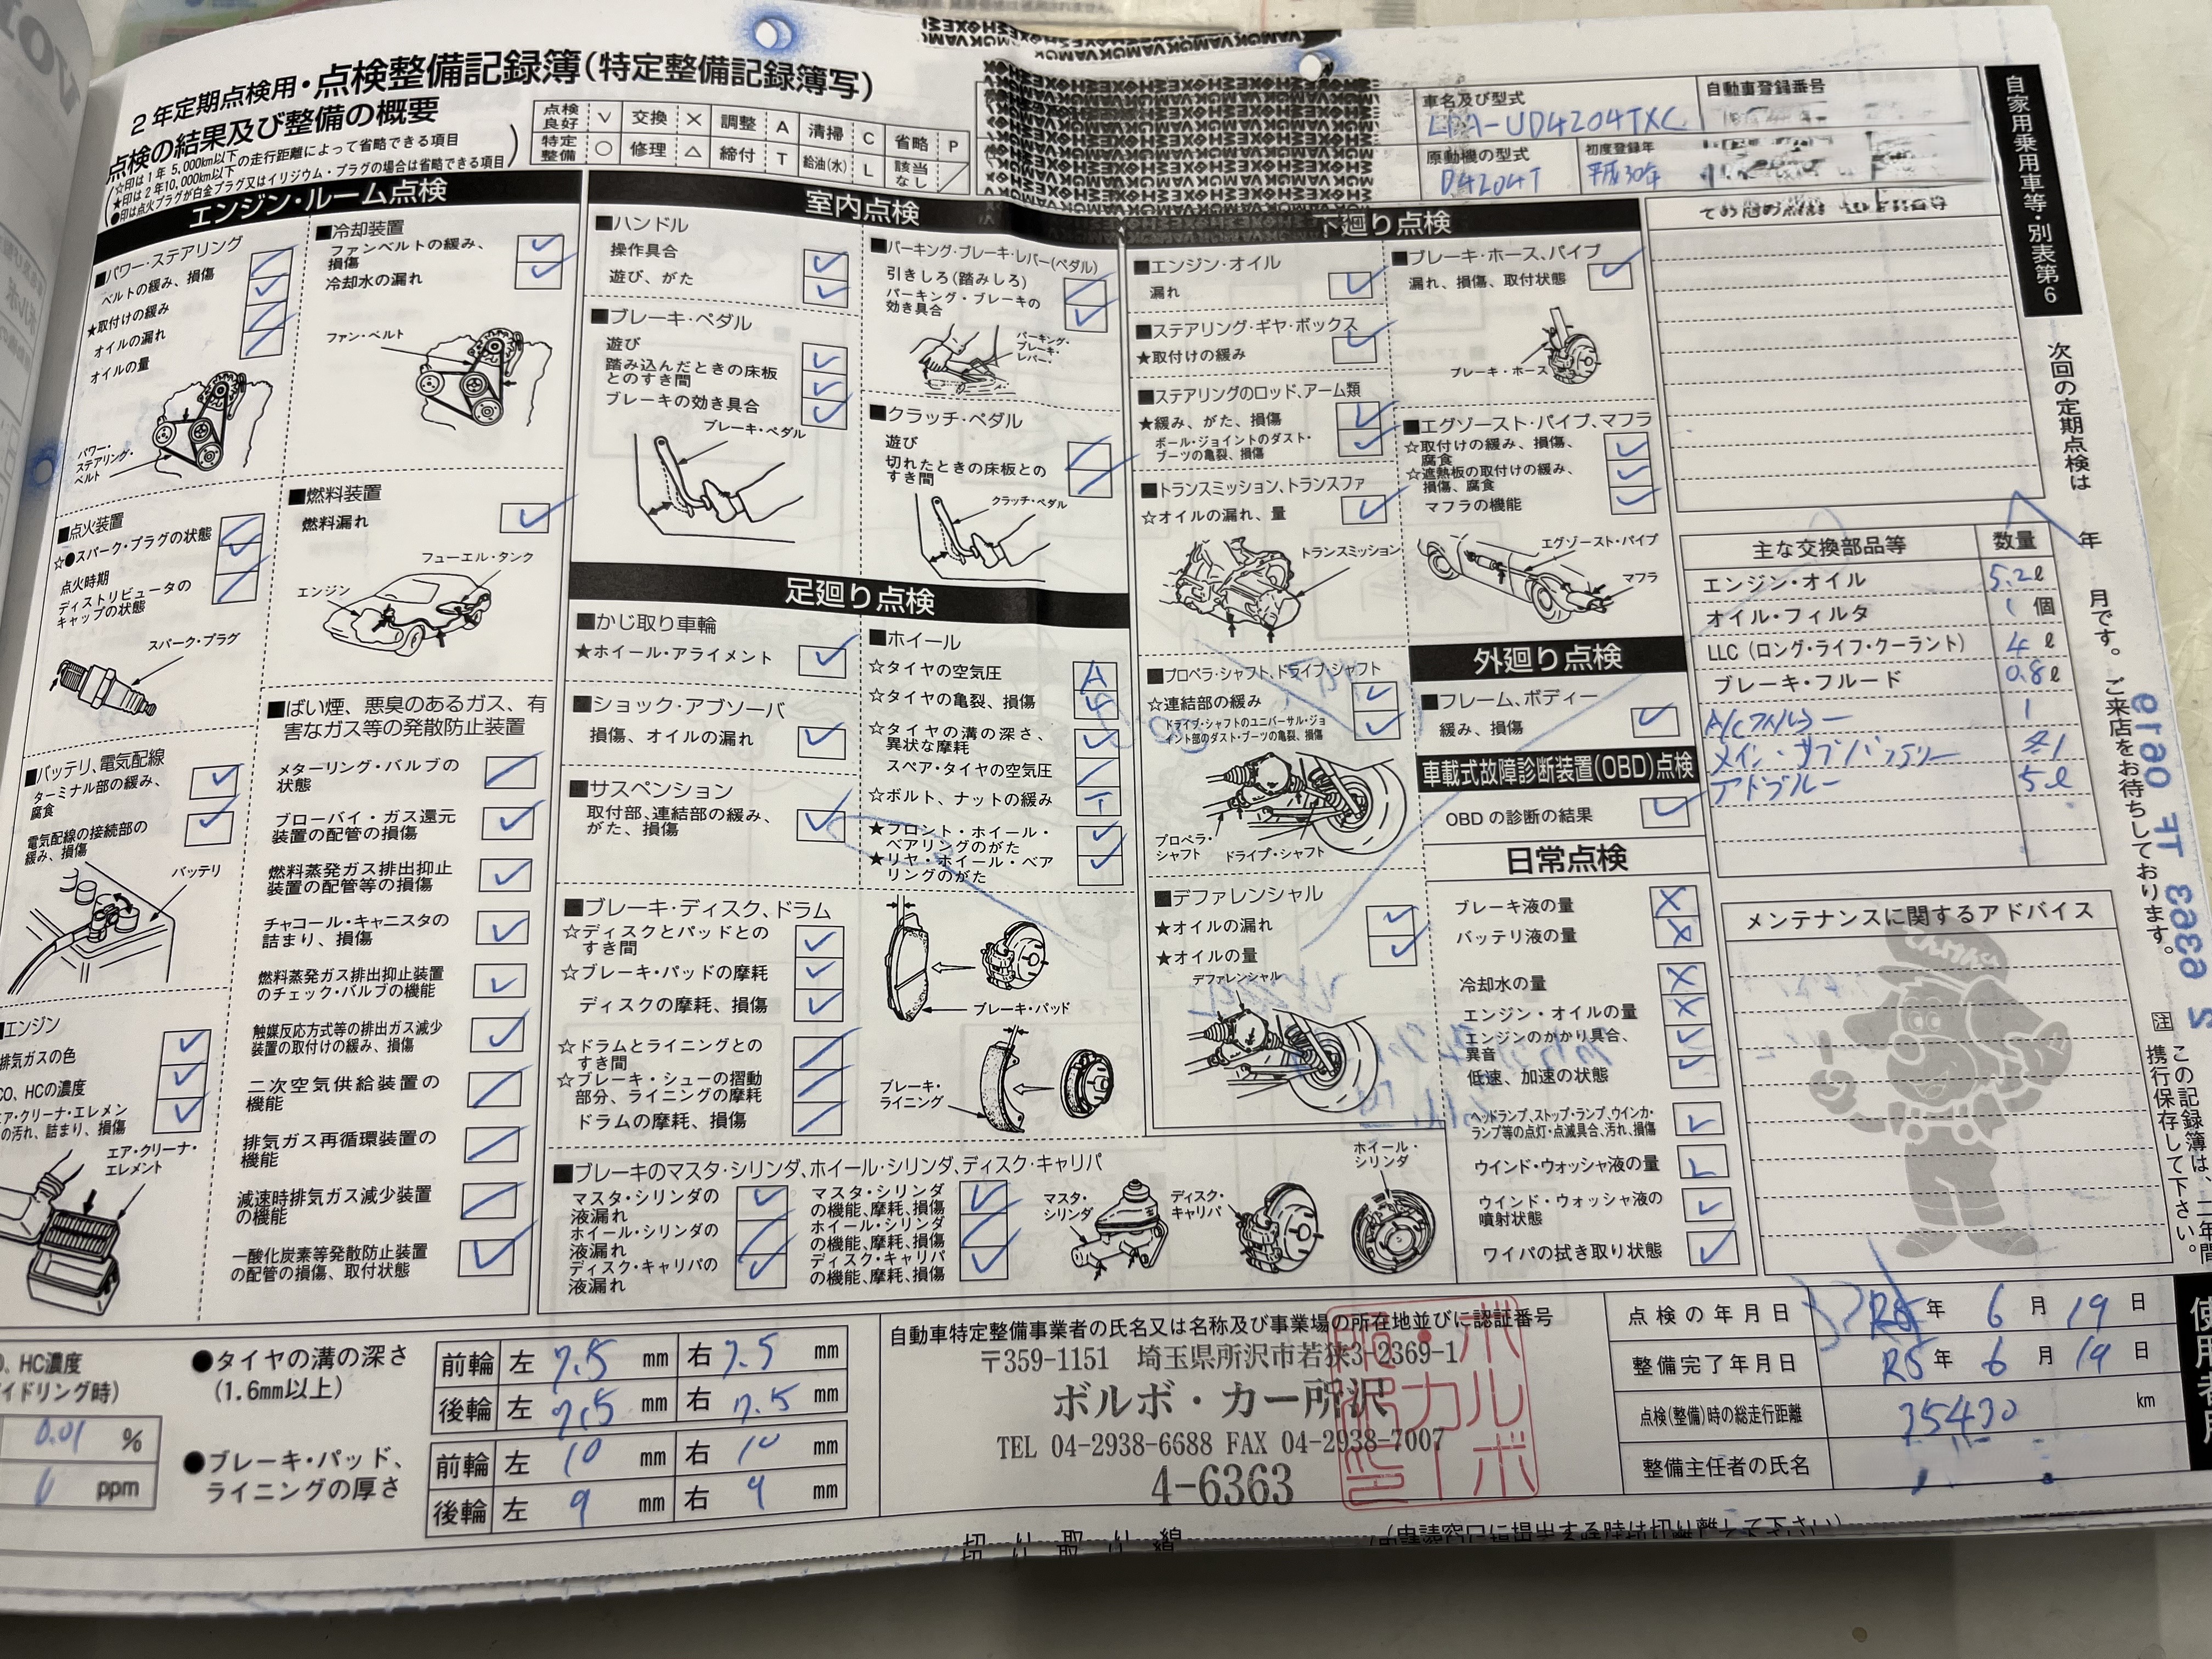 2年定期点検用・点検整備記録簿(特定整備記録簿写)
点検の結果及び整備の概要
☆印は1年 5,000km以下の走行距離によって省略できる項目
★印は2年10,000km以下
●印は点火プラグが白金プラグ又はイリジウム・プラグの場合は省略できる項目
点検良好 ✓ 交換 × 調整 A 清掃 C 省略 P
特定整備 ○ 修理 △ 締付 T 給油(水) L 該当なし ／
車名及び型式
LDA-UD4204TXC
自動車登録番号
原動機の型式
D4204T
初度登録年
平成30年
自家用乗用車等・別表第6
エンジン・ルーム点検
■パワー・ステアリング
ベルトの緩み、損傷
★取付けの緩み
オイルの漏れ
オイルの量
パワー・ステアリング・ベルト
■点火装置
☆●スパーク・プラグの状態
点火時期
ディストリビュータのキャップの状態
スパーク・プラグ
■バッテリ、電気配線
ターミナル部の緩み、腐食
電気配線の接続部の緩み、損傷
バッテリ
■エンジン
排気ガスの色
CO、HCの濃度
エア・クリーナ・エレメン
の汚れ、詰まり、損傷
エア・クリーナ・エレメント
■冷却装置
ファンベルトの緩み、損傷
冷却水の漏れ
ファン・ベルト
■燃料装置
燃料漏れ
フューエル・タンク
エンジン
■ばい煙、悪臭のあるガス、有害なガス等の発散防止装置
メターリング・バルブの状態
ブローバイ・ガス還元装置の配管の損傷
燃料蒸発ガス排出抑止装置の配管等の損傷
チャコール・キャニスタの詰まり、損傷
燃料蒸発ガス排出抑止装置のチェック・バルブの機能
触媒反応方式等の排出ガス減少装置の取付けの緩み、損傷
二次空気供給装置の機能
排気ガス再循環装置の機能
減速時排気ガス減少装置の機能
一酸化炭素等発散防止装置の配管の損傷、取付状態
室内点検
■ハンドル
操作具合
遊び、がた
■ブレーキ・ペダル
遊び
踏み込んだときの床板とのすき間
ブレーキの効き具合
ブレーキ・ペダル
■パーキング・ブレーキ・レバー(ペダル)
引きしろ(踏みしろ)
パーキング・ブレーキの効き具合
パーキング・ブレーキ・レバー
■クラッチ・ペダル
遊び
切れたときの床板とのすき間
クラッチ・ペダル
足廻り点検
■かじ取り車輪
★ホイール・アライメント
■ショック・アブソーバ
損傷、オイルの漏れ
■サスペンション
取付部、連結部の緩み、がた、損傷
■ホイール
☆タイヤの空気圧 A
☆タイヤの亀裂、損傷
☆タイヤの溝の深さ、異状な摩耗
スペア・タイヤの空気圧
☆ボルト、ナットの緩み T
★フロント・ホイール・ベアリングのがた
★リヤ・ホイール・ベアリングのがた
■ブレーキ・ディスク、ドラム
☆ディスクとパッドとのすき間
☆ブレーキ・パッドの摩耗
ディスクの摩耗、損傷
☆ドラムとライニングとのすき間
☆ブレーキ・シューの摺動部分、ライニングの摩耗
ドラムの摩耗、損傷
ブレーキ・パッド
ブレーキ・ライニング
■ブレーキのマスタ・シリンダ、ホイール・シリンダ、ディスク・キャリパ
マスタ・シリンダの液漏れ
ホイール・シリンダの液漏れ
ディスク・キャリパの液漏れ
マスタ・シリンダの機能、摩耗、損傷
ホイール・シリンダの機能、摩耗、損傷
ディスク・キャリパの機能、摩耗、損傷
マスタ・シリンダ
ディスク・キャリパ
ホイール・シリンダ
下廻り点検
■エンジン・オイル
漏れ
■ステアリング・ギヤ・ボックス
★取付けの緩み
■ステアリングのロッド、アーム類
★緩み、がた、損傷
ボール・ジョイントのダスト・ブーツの亀裂、損傷
■トランスミッション、トランスファ
☆オイルの漏れ、量
トランスミッション
■プロペラ・シャフト、ドライブ・シャフト
☆連結部の緩み
ドライブ・シャフトのユニバーサル・ジョイント部のダスト・ブーツの亀裂、損傷
プロペラ・シャフト
ドライブ・シャフト
■デファレンシャル
★オイルの漏れ
★オイルの量
デファレンシャル
■ブレーキ・ホース、パイプ
漏れ、損傷、取付状態
ブレーキ・ホース
■エグゾースト・パイプ、マフラ
☆取付けの緩み、損傷、腐食
☆遮熱板の取付けの緩み、損傷、腐食
マフラの機能
エグゾースト・パイプ
マフラ
外廻り点検
■フレーム、ボディー
緩み、損傷
車載式故障診断装置(OBD)点検
OBDの診断の結果
日常点検
ブレーキ液の量 ×
バッテリ液の量 ×
冷却水の量 ×
エンジン・オイルの量 ×
エンジンのかかり具合、異音
低速、加速の状態
ヘッドランプ、ストップ・ランプ、ウインカ・ランプ等の点灯・点滅具合、汚れ、損傷
ウインド・ウォッシャ液の量 L
ウインド・ウォッシャ液の噴射状態
ワイパの拭き取り状態
主な交換部品等 数量
エンジン・オイル 5.2ℓ
オイル・フィルタ 1個
LLC(ロング・ライフ・クーラント) 4ℓ
ブレーキ・フルード 0.8ℓ
A/Cフィルター 1
メイン・サブバッテリー 各1
アドブルー 5ℓ
メンテナンスに関するアドバイス
次回の定期点検は 年 月です。ご来店をお待ちしております。
注 この記録簿は、二年間携行保存して下さい。
使用者用
CO、HC濃度
(アイドリング時)
0.01 %
ppm
●タイヤの溝の深さ
(1.6mm以上)
前輪 左 7.5 mm 右 7.5 mm
後輪 左 7.5 mm 右 7.5 mm
●ブレーキ・パッド、ライニングの厚さ
前輪 左 10 mm 右 10 mm
後輪 左 9 mm 右 9 mm
自動車特定整備事業者の氏名又は名称及び事業場の所在地並びに認証番号
〒359-1151 埼玉県所沢市若狭3-2369-1
ボルボ・カー所沢
TEL 04-2938-6688 FAX 04-2938-7007
4-6363
点検の年月日 R5年 6月 19日
整備完了年月日 R5年 6月 19日
点検(整備)時の総走行距離 35430 km
整備主任者の氏名
切り取り線 (申請窓口に提出する時は切り離して下さい)